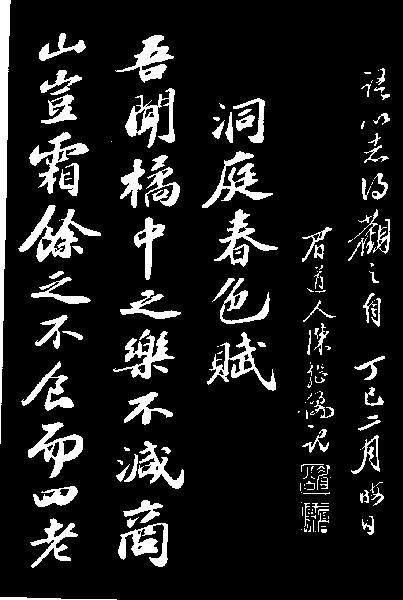 語以志得觀之自 丁巳二月晦日
眉道人陳繼儒記
洞庭春色賦
吾聞橘中之樂不減商
山豈霜餘之不食而四老